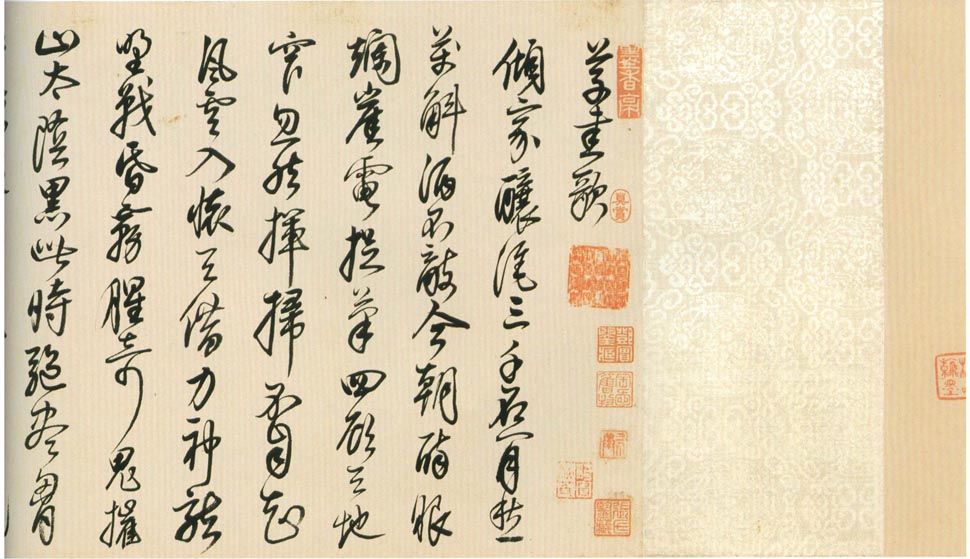 草書歌
傾家釀酒三千石閒愁
萬斛酒不敵今朝醉眼
爛巖電提筆四顧天地
窄忽然揮掃不自知
風雲入懷天借力神龍
野戰昏霧腥奇鬼摧
山太陰黑此時驅盡胸
真賞